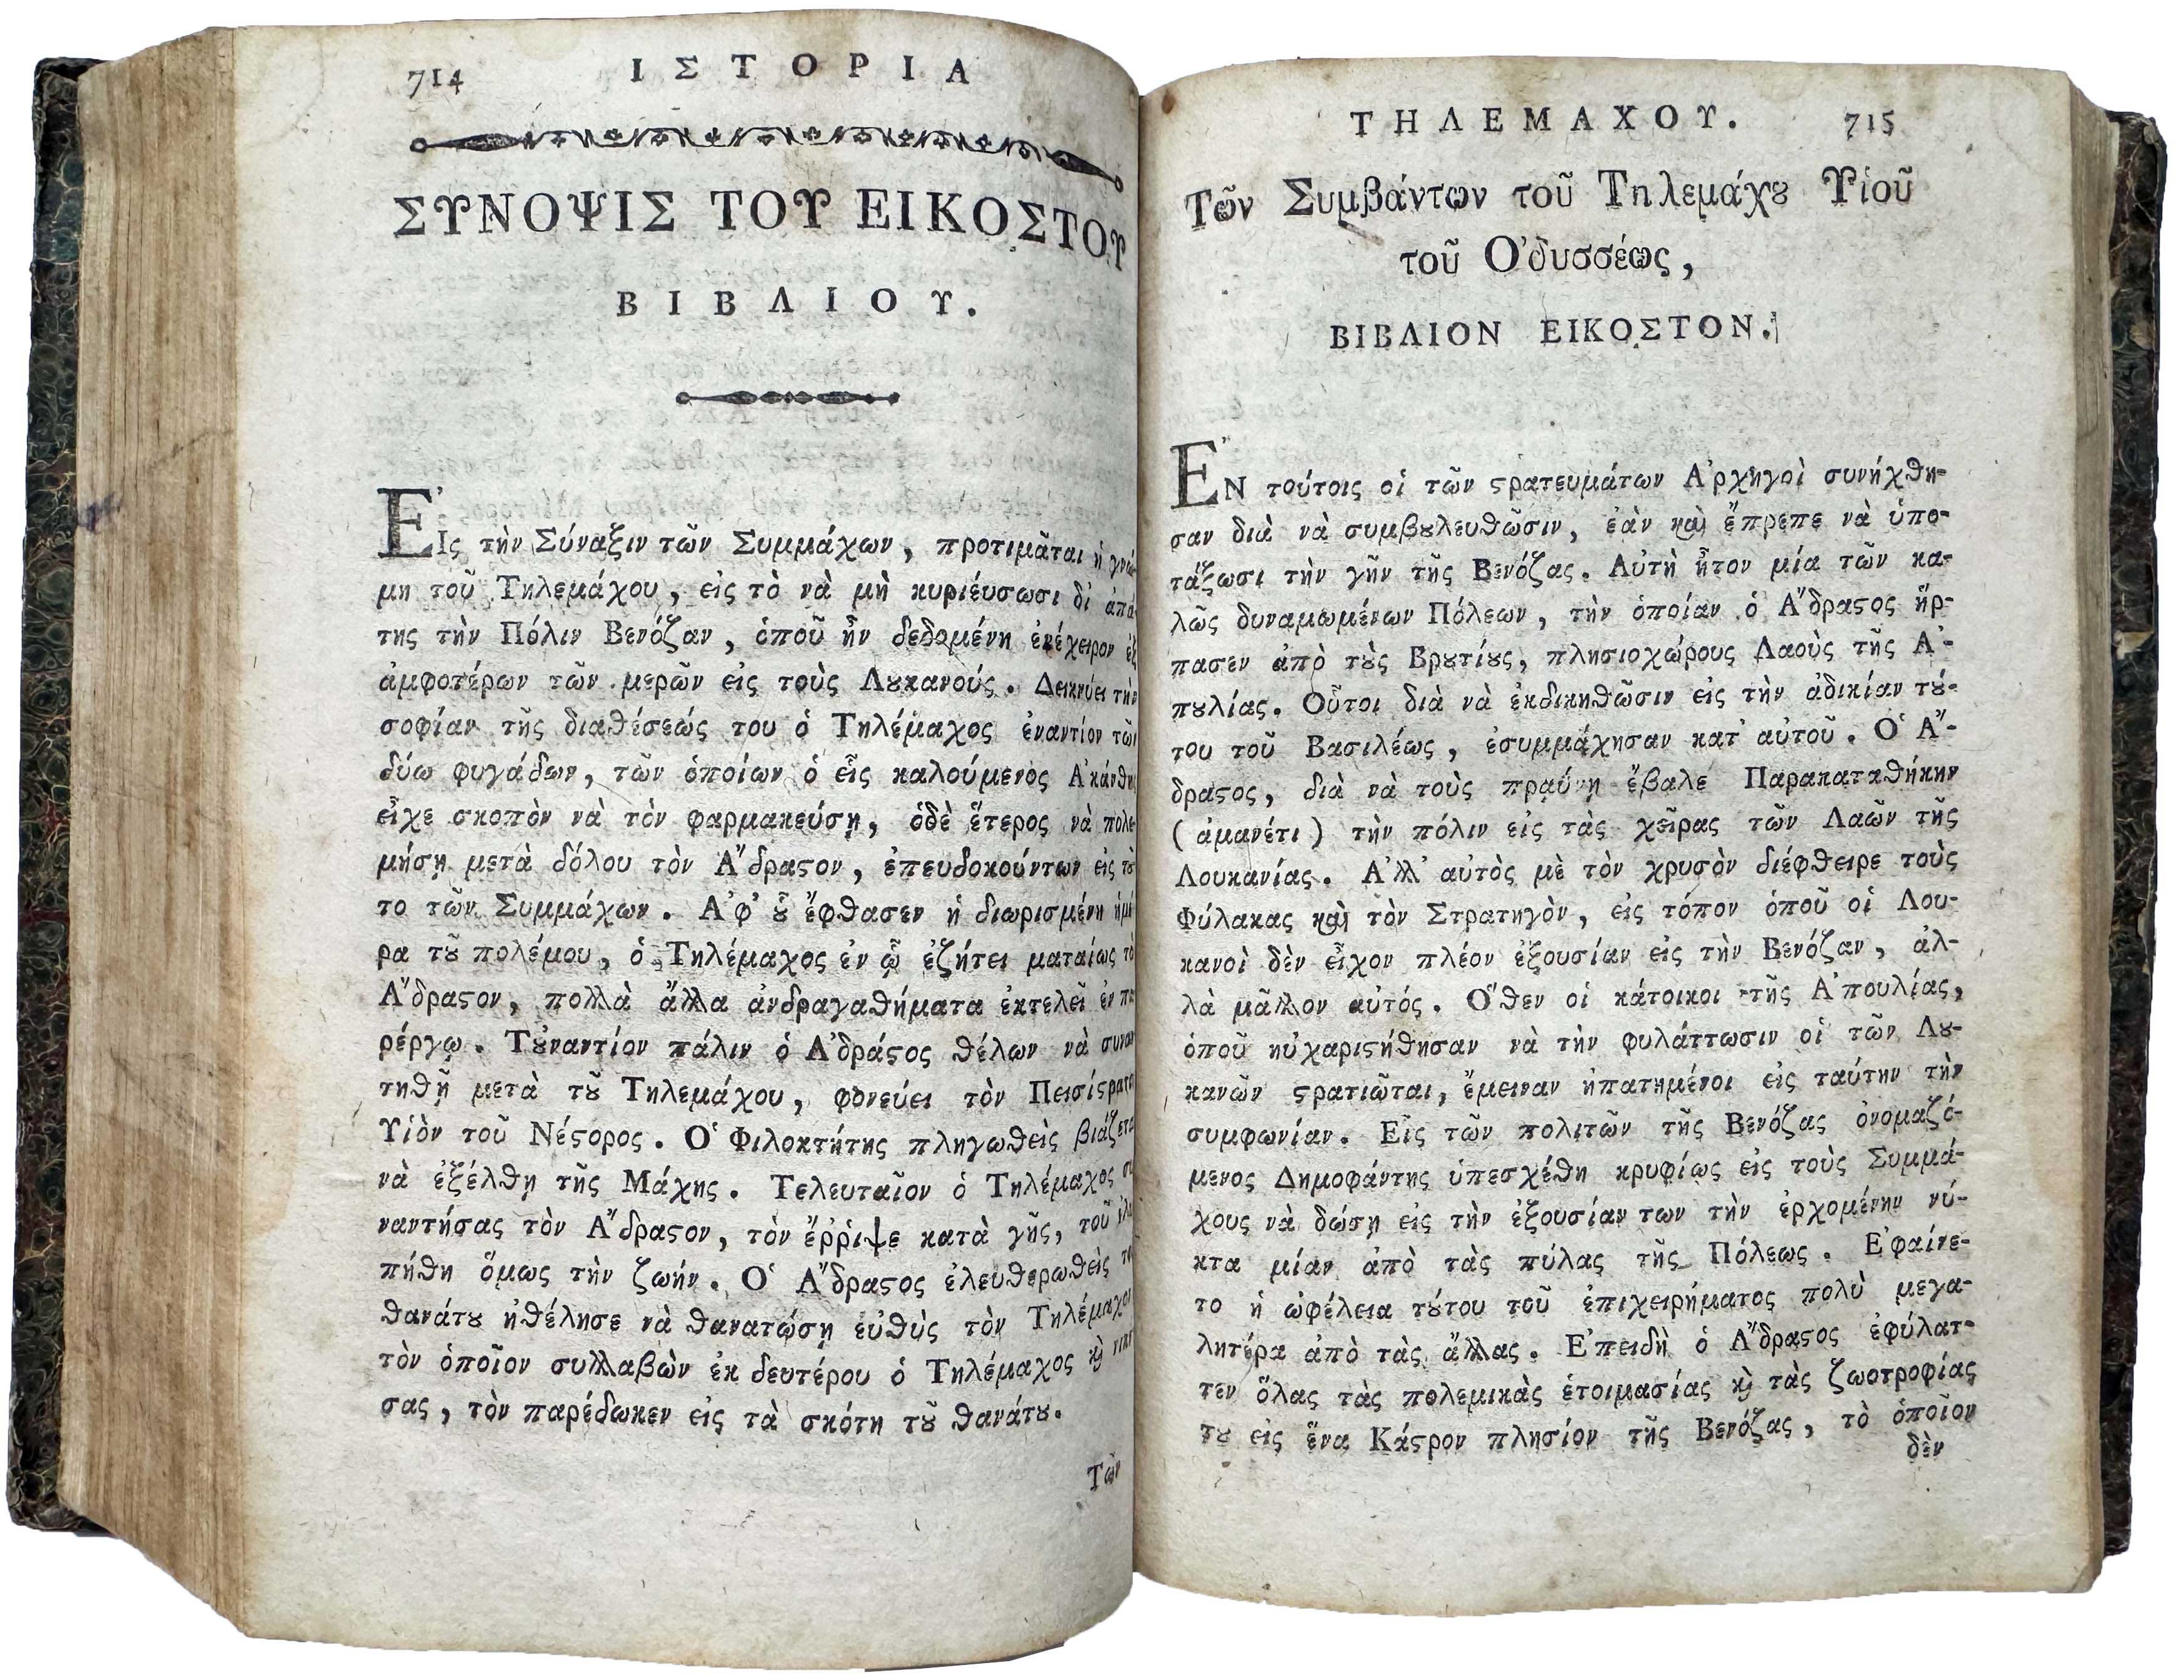 714 ΙΣΤΟΡΙΑ
ΣΥΝΟΨΙΣ ΤΟΥ ΕΙΚΟΣΤΟΥ
ΒΙΒΛΙΟΥ.
Εἰς τὴν Σύναξιν τῶν Συμμάχων, προτιμᾶται ἡ γνώ-
μη τοῦ Τηλεμάχου, εἰς τὸ νὰ μὴ κυριέυσωσι δἰ ἀπά-
της τὴν Πόλιν Βενόζαν, ὁποῦ ἦν δεδομένη ἐνέχειρον ἐξ
ἀμφοτέρων τῶν μερῶν εἰς τοὺς Λȣκανούς. Δεικνύει τὴν
σοφίαν τῆς διαθέσεώς του ὁ Τηλέμαχος ἐναντίον τῶν
δύω φυγάδων, τῶν ὁποίων ὁ εἷς καλούμενος Ἀκάνθης
εἶχε σκοπὸν νὰ τὸν φαρμακεύσῃ, ὁδὲ ἕτερος νὰ πολε-
μήσῃ μετὰ δόλου τὸν Ἄδραϛον, ἐπευδοκούντων εἰς τȣ̃-
το τῶν Συμμάχων. Ἀφ' ȣ̔͂ ἔφθασεν ἡ διωρισμένη ἡμέ-
ρα τȣ͂ πολέμου, ὁ Τηλέμαχος ἐν ᾧ ἐζήτει ματαίως τὸν
Ἄδραϛον, πολλὰ ἄλλα ἀνδραγαθήματα ἐκτελεῖ ἐν πα-
ρέργῳ. Τȣ̓ναντίον πάλιν ὁ Ἀδράϛος θέλων νὰ συναν-
τηθῇ μετὰ τȣ͂ Τηλεμάχου, φονεύει τὸν Πεισίϛρατον
Υἱὸν τοῦ Νέϛορος. Ὁ Φιλοκτήτης πληγωθεὶς βιάζεται
νὰ ἐξέλθῃ τῆς Μάχης. Τελευταῖον ὁ Τηλέμαχος συ-
ναντήσας τὸν Ἄδραϛον, τὸν ἔῤῥιψε κατὰ γῆς, τοῦ ἐλυ-
πήθη ὅμως τὴν ζωήν. Ὁ Ἄδραϛος ἐλευθερωθεὶς τοῦ
θανάτȣ ἠθέλησε νὰ θανατώσῃ εὐθὺς τὸν Τηλέμαχον
τὸν ὁποῖον συλλαβὼν ἐκ δευτέρου ὁ Τηλέμαχος ϗ̀ νική-
σας, τὸν παρέδωκεν εἰς τὰ σκότη τȣ͂ θανάτȣ.
Τῶν
ΤΗΛΕΜΑΧΟΥ. 715
Τῶν Συμβάντων τοῦ Τηλεμάχȣ Υἱοῦ
τοῦ Ὀδυσσέως,
ΒΙΒΛΙΟΝ ΕΙΚΟΣΤΟΝ.
Ἐν τούτοις οἱ τῶν ϛρατευμάτων Ἀρχηγοὶ συνήχθη-
σαν διὰ νὰ συμβȣλευθῶσιν, ἐὰν καὶ ἔπρεπε νὰ ὑπο-
τάξωσι τὴν γῆν τῆς Βενόζας. Αὐτὴ ἦτον μία τῶν κα-
λῶς δυναμωμένων Πόλεων, τὴν ὁποίαν ὁ Ἄδραϛος ἥρ-
πασεν ἀπὸ τȣ̀ς Βρȣτίȣς, πλησιοχώρους Λαοὺς τῆς Ἀ-
πȣλίας. Οὗτοι διὰ νὰ ἐκδικηθῶσιν εἰς τὴν ἀδικίαν τȣ́-
του τοῦ Βασιλέως, ἐσυμμάχησαν κατ' αὐτοῦ. Ὁ Ἄ-
δραϛος, διὰ νὰ τοὺς πραΰνῃ ἔβαλε Παρακαταθήκην
(ἀμανέτι) τὴν πόλιν εἰς τὰς χεῖρας τῶν Λαῶν τῆς
Λουκανίας. Ἀλλ' αὐτὸς μὲ τὸν χρυσὸν διέφθειρε τοὺς
Φύλακας καὶ τὸν Στρατηγὸν, εἰς τόπον ὁποῦ οἱ Λου-
κανοὶ δὲν εἶχον πλέον ἐξουσίαν εἰς τὴν Βενόζαν, ἀλ-
λὰ μᾶλλον αὐτός. Ὅθεν οἱ κάτοικοι τῆς Ἀπουλίας,
ὁποῦ ηὐχαριϛήθησαν νὰ τὴν φυλάττωσιν οἱ τῶν Λȣ-
κανῶν ϛρατιῶται, ἔμειναν ἠπατημένοι εἰς ταύτην τὴν
συμφωνίαν. Εἷς τῶν πολιτῶν τῆς Βενόζας ὀνομαζό-
μενος Δημοφάντης ὑπεσχέθη κρυφίως εἰς τοὺς Συμμά-
χους νὰ δώσῃ εἰς τὴν ἐξουσίαν των τὴν ἐρχομένην νύ-
κτα μίαν ἀπὸ τὰς πύλας τῆς Πόλεως. Ἐφαίνε-
το ἡ ὠφέλεια τȣ́του τοῦ ἐπιχειρήματος πολὺ μεγα-
λητέρα ἀπὸ τὰς ἄλλας. Ἐπειδὴ ὁ Ἄδραϛος ἐφύλατ-
τεν ὅλας τὰς πολεμικὰς ἑτοιμασίας ϗ̀ τὰς ζωοτροφίας
τȣ εἰς ἕνα Κάϛρον πλησίον τῆς Βενόζας, τὸ ὁποῖον
δὲν